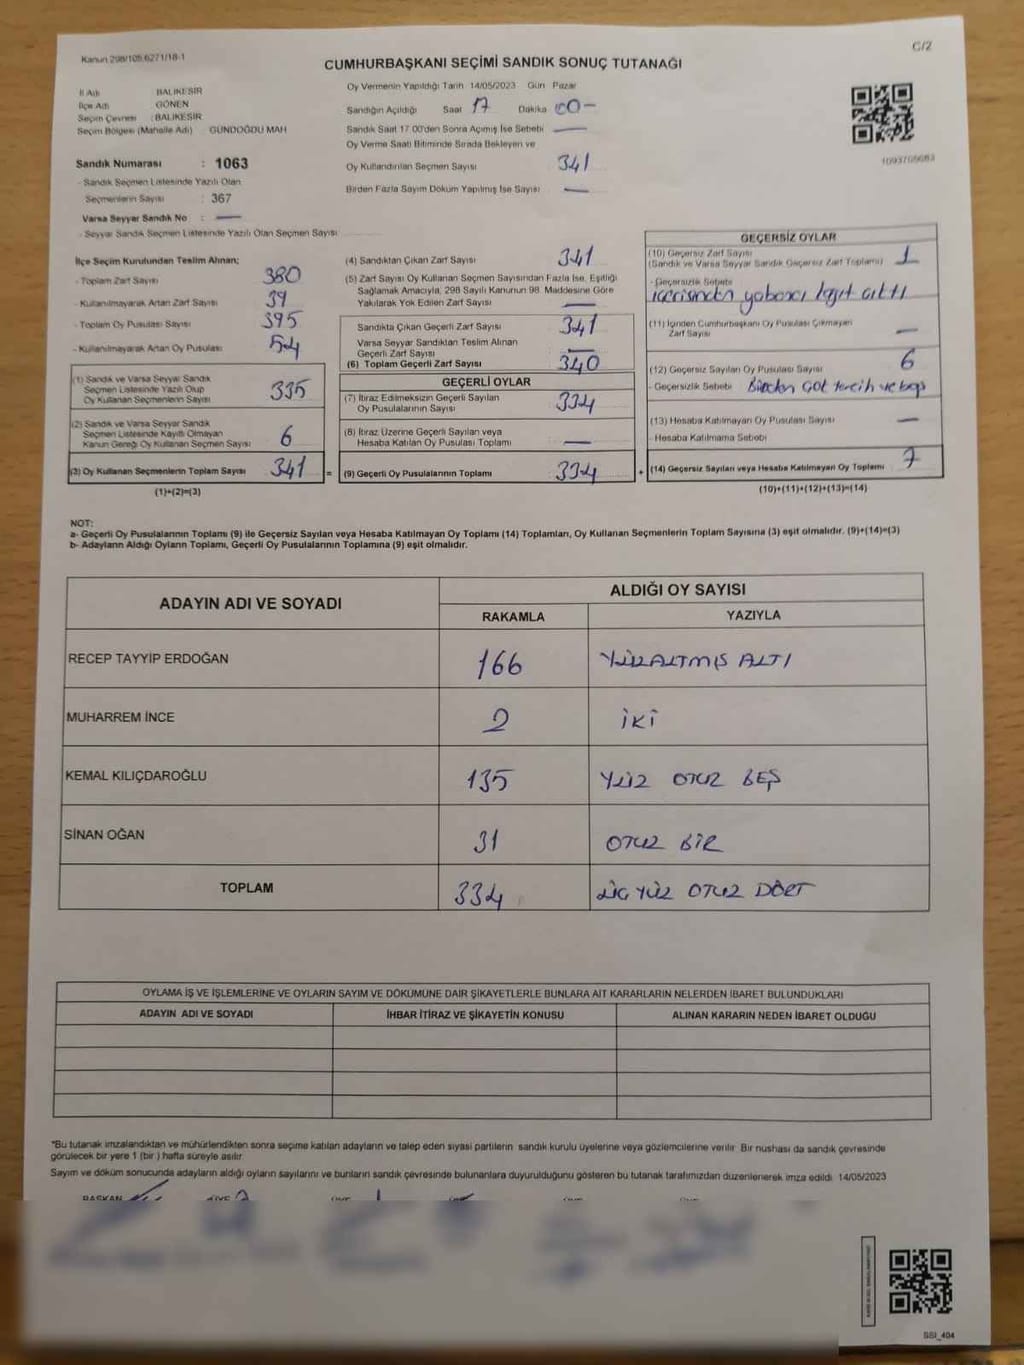 Kanun 298/105.6271/18-1
C/2
CUMHURBAŞKANI SEÇİMİ SANDIK SONUÇ TUTANAĞI
İl Adı BALIKESİR
İlçe Adı GÖNEN
Seçim Çevresi : BALIKESİR
Seçim Bölgesi (Mahalle Adı) GÜNDOĞDU MAH
Sandık Numarası : 1063
- Sandık Seçmen Listesinde Yazılı Olan
Seçmenlerin Sayısı : 367
Varsa Seyyar Sandık No : —
- Seyyar Sandık Seçmen Listesinde Yazılı Olan Seçmen Sayısı
Oy Vermenin Yapıldığı Tarih 14/05/2023 Gün Pazar
Sandığın Açıldığı Saat 17 Dakika 00-
Sandık Saat 17.00'den Sonra Açılmış İse Sebebi —
Oy Verme Saati Bitiminde Sırada Bekleyen ve
Oy Kullandırılan Seçmen Sayısı 341
Birden Fazla Sayım Döküm Yapılmış İse Sayısı —
1093706683
İlçe Seçim Kurulundan Teslim Alınan;
- Toplam Zarf Sayısı 380
- Kullanılmayarak Artan Zarf Sayısı 39
- Toplam Oy Pusulası Sayısı 395
- Kullanılmayarak Artan Oy Pusulası 54
(1) Sandık ve Varsa Seyyar Sandık
Seçmen Listesinde Yazılı Olup
Oy Kullanan Seçmenlerin Sayısı 335
(2) Sandık ve Varsa Seyyar Sandık
Seçmen Listesinde Kayıtlı Olmayan
Kanun Gereği Oy Kullanan Seçmen Sayısı 6
(3) Oy Kullanan Seçmenlerin Toplam Sayısı 341 =
(1)+(2)=(3)
(4) Sandıktan Çıkan Zarf Sayısı 341
(5) Zarf Sayısı Oy Kullanan Seçmen Sayısından Fazla İse, Eşitliği
Sağlamak Amacıyla, 298 Sayılı Kanunun 98. Maddesine Göre
Yakılarak Yok Edilen Zarf Sayısı —
Sandıkta Çıkan Geçerli Zarf Sayısı 341
Varsa Seyyar Sandıktan Teslim Alınan
Geçerli Zarf Sayısı —
(6) Toplam Geçerli Zarf Sayısı 340
GEÇERLİ OYLAR
(7) İtiraz Edilmeksizin Geçerli Sayılan
Oy Pusulalarının Sayısı 334
(8) İtiraz Üzerine Geçerli Sayılan veya
Hesaba Katılan Oy Pusulası Toplamı —
(9) Geçerli Oy Pusulalarının Toplamı 334 +
GEÇERSİZ OYLAR
(10) Geçersiz Zarf Sayısı
(Sandık ve Varsa Seyyar Sandık Geçersiz Zarf Toplamı) 1
- Geçersizlik Sebebi
içerisinden yabancı kağıt çıktı
(11) İçinden Cumhurbaşkanı Oy Pusulası Çıkmayan
Zarf Sayısı —
(12) Geçersiz Sayılan Oy Pusulası Sayısı 6
- Geçersizlik Sebebi Birden çok tercih
(13) Hesaba Katılmayan Oy Pusulası Sayısı —
- Hesaba Katılmama Sebebi
(14) Geçersiz Sayılan veya Hesaba Katılmayan Oy Toplamı 7
(10)+(11)+(12)+(13)=(14)
NOT:
a- Geçerli Oy Pusulalarının Toplamı (9) ile Geçersiz Sayılan veya Hesaba Katılmayan Oy Toplamı (14) Toplamları, Oy Kullanan Seçmenlerin Toplam Sayısına (3) eşit olmalıdır. (9)+(14)=(3)
b- Adayların Aldığı Oyların Toplamı, Geçerli Oy Pusulalarının Toplamına (9) eşit olmalıdır.
ADAYIN ADI VE SOYADI
ALDIĞI OY SAYISI
RAKAMLA YAZIYLA
RECEP TAYYİP ERDOĞAN 166 YÜZALTMIŞ ALTI
MUHARREM İNCE 2 İKİ
KEMAL KILIÇDAROĞLU 135 YÜZ OTUZ BEŞ
SİNAN OĞAN 31 OTUZ BİR
TOPLAM 334 ÜÇ YÜZ OTUZ DÖRT
OYLAMA İŞ VE İŞLEMLERİNE VE OYLARIN SAYIM VE DÖKÜMÜNE DAİR ŞİKAYETLERLE BUNLARA AİT KARARLARIN NELERDEN İBARET BULUNDUKLARI
ADAYIN ADI VE SOYADI İHBAR İTİRAZ VE ŞİKAYETİN KONUSU ALINAN KARARIN NEDEN İBARET OLDUĞU
*Bu tutanak imzalandıktan ve mühürlendikten sonra seçime katılan adayların ve talep eden siyasi partilerin sandık kurulu üyelerine veya gözlemcilerine verilir. Bir nüshası da sandık çevresinde
görülecek bir yere 1 (bir) hafta süreyle asılır.
Sayım ve döküm sonucunda adayların aldığı oyların sayılarını ve bunların sandık çevresinde bulunanlara duyurulduğunu gösteren bu tutanak tarafımızdan düzenlenerek imza edildi. 14/05/2023
BAŞKAN
SSI_404